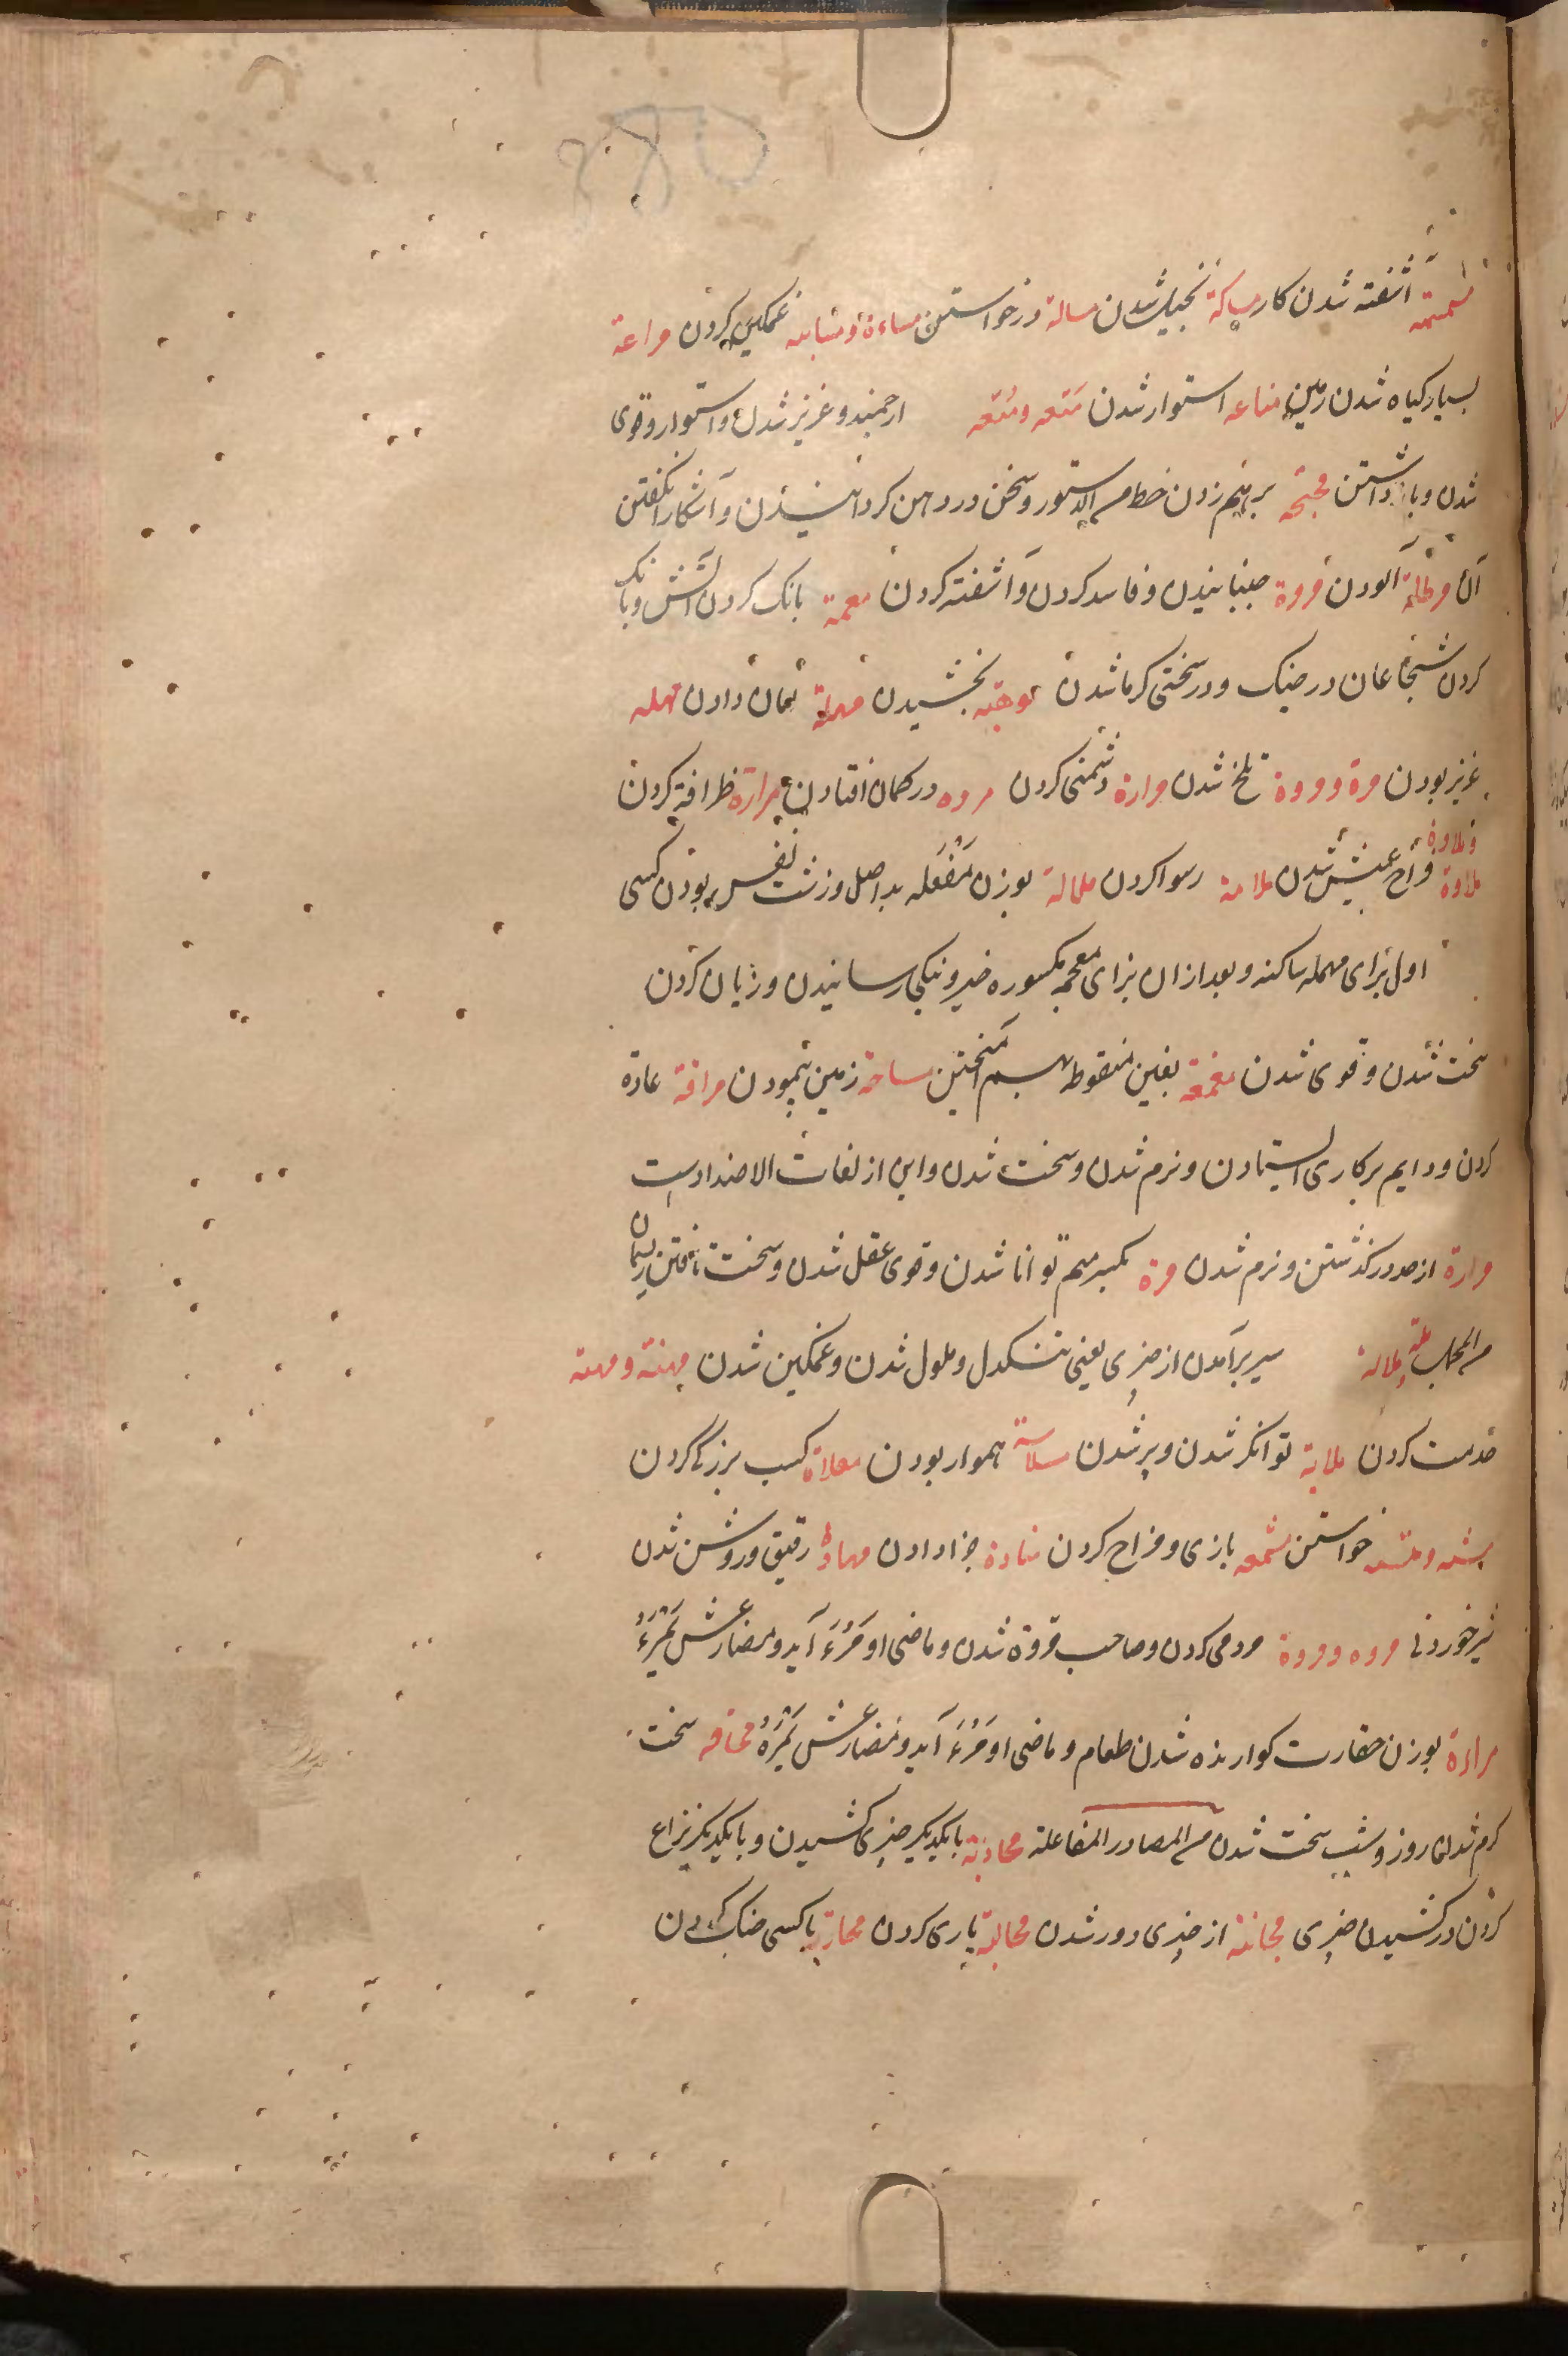 آشفته شدن کار مساکة بخیل شدن مسالة درخواستن مساءة و مسایه غمکین کردن مراعة
بسیار کیاه شدن زمین مناعه استوار شدن مَنَعه و مُنَعه ارجمند و عزیز شدن و استوار و قوی
شدن و بازداشتن مجمجه برهم زدن خط من الدستور و سخن در دهن کردانیدن و آشکارا نکفتن
آن مرطلة آلودن مزوة جنبانیدن و فاسد کردن و آشفته کردن معمة بانک کردن آتش و بانک
کردن شجاعان در جنک و در سختی کرما شدن موهبة بخشیدن مهلة زمان دادن مهله
عزیز بودن مرة و مروة تلخ شدن مرارة دشمنی کردن مروه در کمان افتادن مرارة ظرافة کردن
و ملاوة
ملاوة فراخ عیش شدن ملامة رسوا کردن ملالة بوزن مَفْعَله بد اصل و زشت نفس بودن کسی
اول برای مهمله ساکنه و بعد ازان بزای معجمه مکسوره خیر و نیکی رسانیدن و زیان کردن
سخت شدن و قوی شدن مغمغة بغین منقوطه بهم آمیختن مساحة زمین پیمودن مرانة عادة
کردن و دایم بر کاری ایستادن و نرم شدن و سخت شدن و این از لغات الاضدادست
مرارة از حد در کذشتن و نرم شدن مرة بکسر میم توانا شدن و قوی عقل شدن و سخت تافتن ریسمان
ملة ملالة سیر برآمدن از چیزی یعنی تنکدل و ملول شدن و غمکین شدن مهنة و مهنة
خدمت کردن ملایة توانکر شدن و پر شدن ملاسة هموار بودن معلاة کسب بزرکی کردن
خواستن مشمعه بازی و مزاح کردن جزا دادن مهاوة رقیق و روشن شدن
شیر خوردنی مروه و مروة مردمی کردن و صاحب مروة شدن و ماضی او مَرُءَ آید و مضارعش یَمْرُءُ
مراءة بوزن حقارت کوارنده شدن طعام و ماضی او مَرُءَ آید و مضارعش یَمْرُءُ محاقه سخت
کرم شدن روز و شب سخت شدن من المصادر المفاعلة مجاذبة با یکدیکر چیزی کشیدن و با یکدیکر نزاع
کردن در کشیدن چیزی مجانبة از چیزی دور شدن محالبة یاری کردن محاربة با کسی جنک کردن